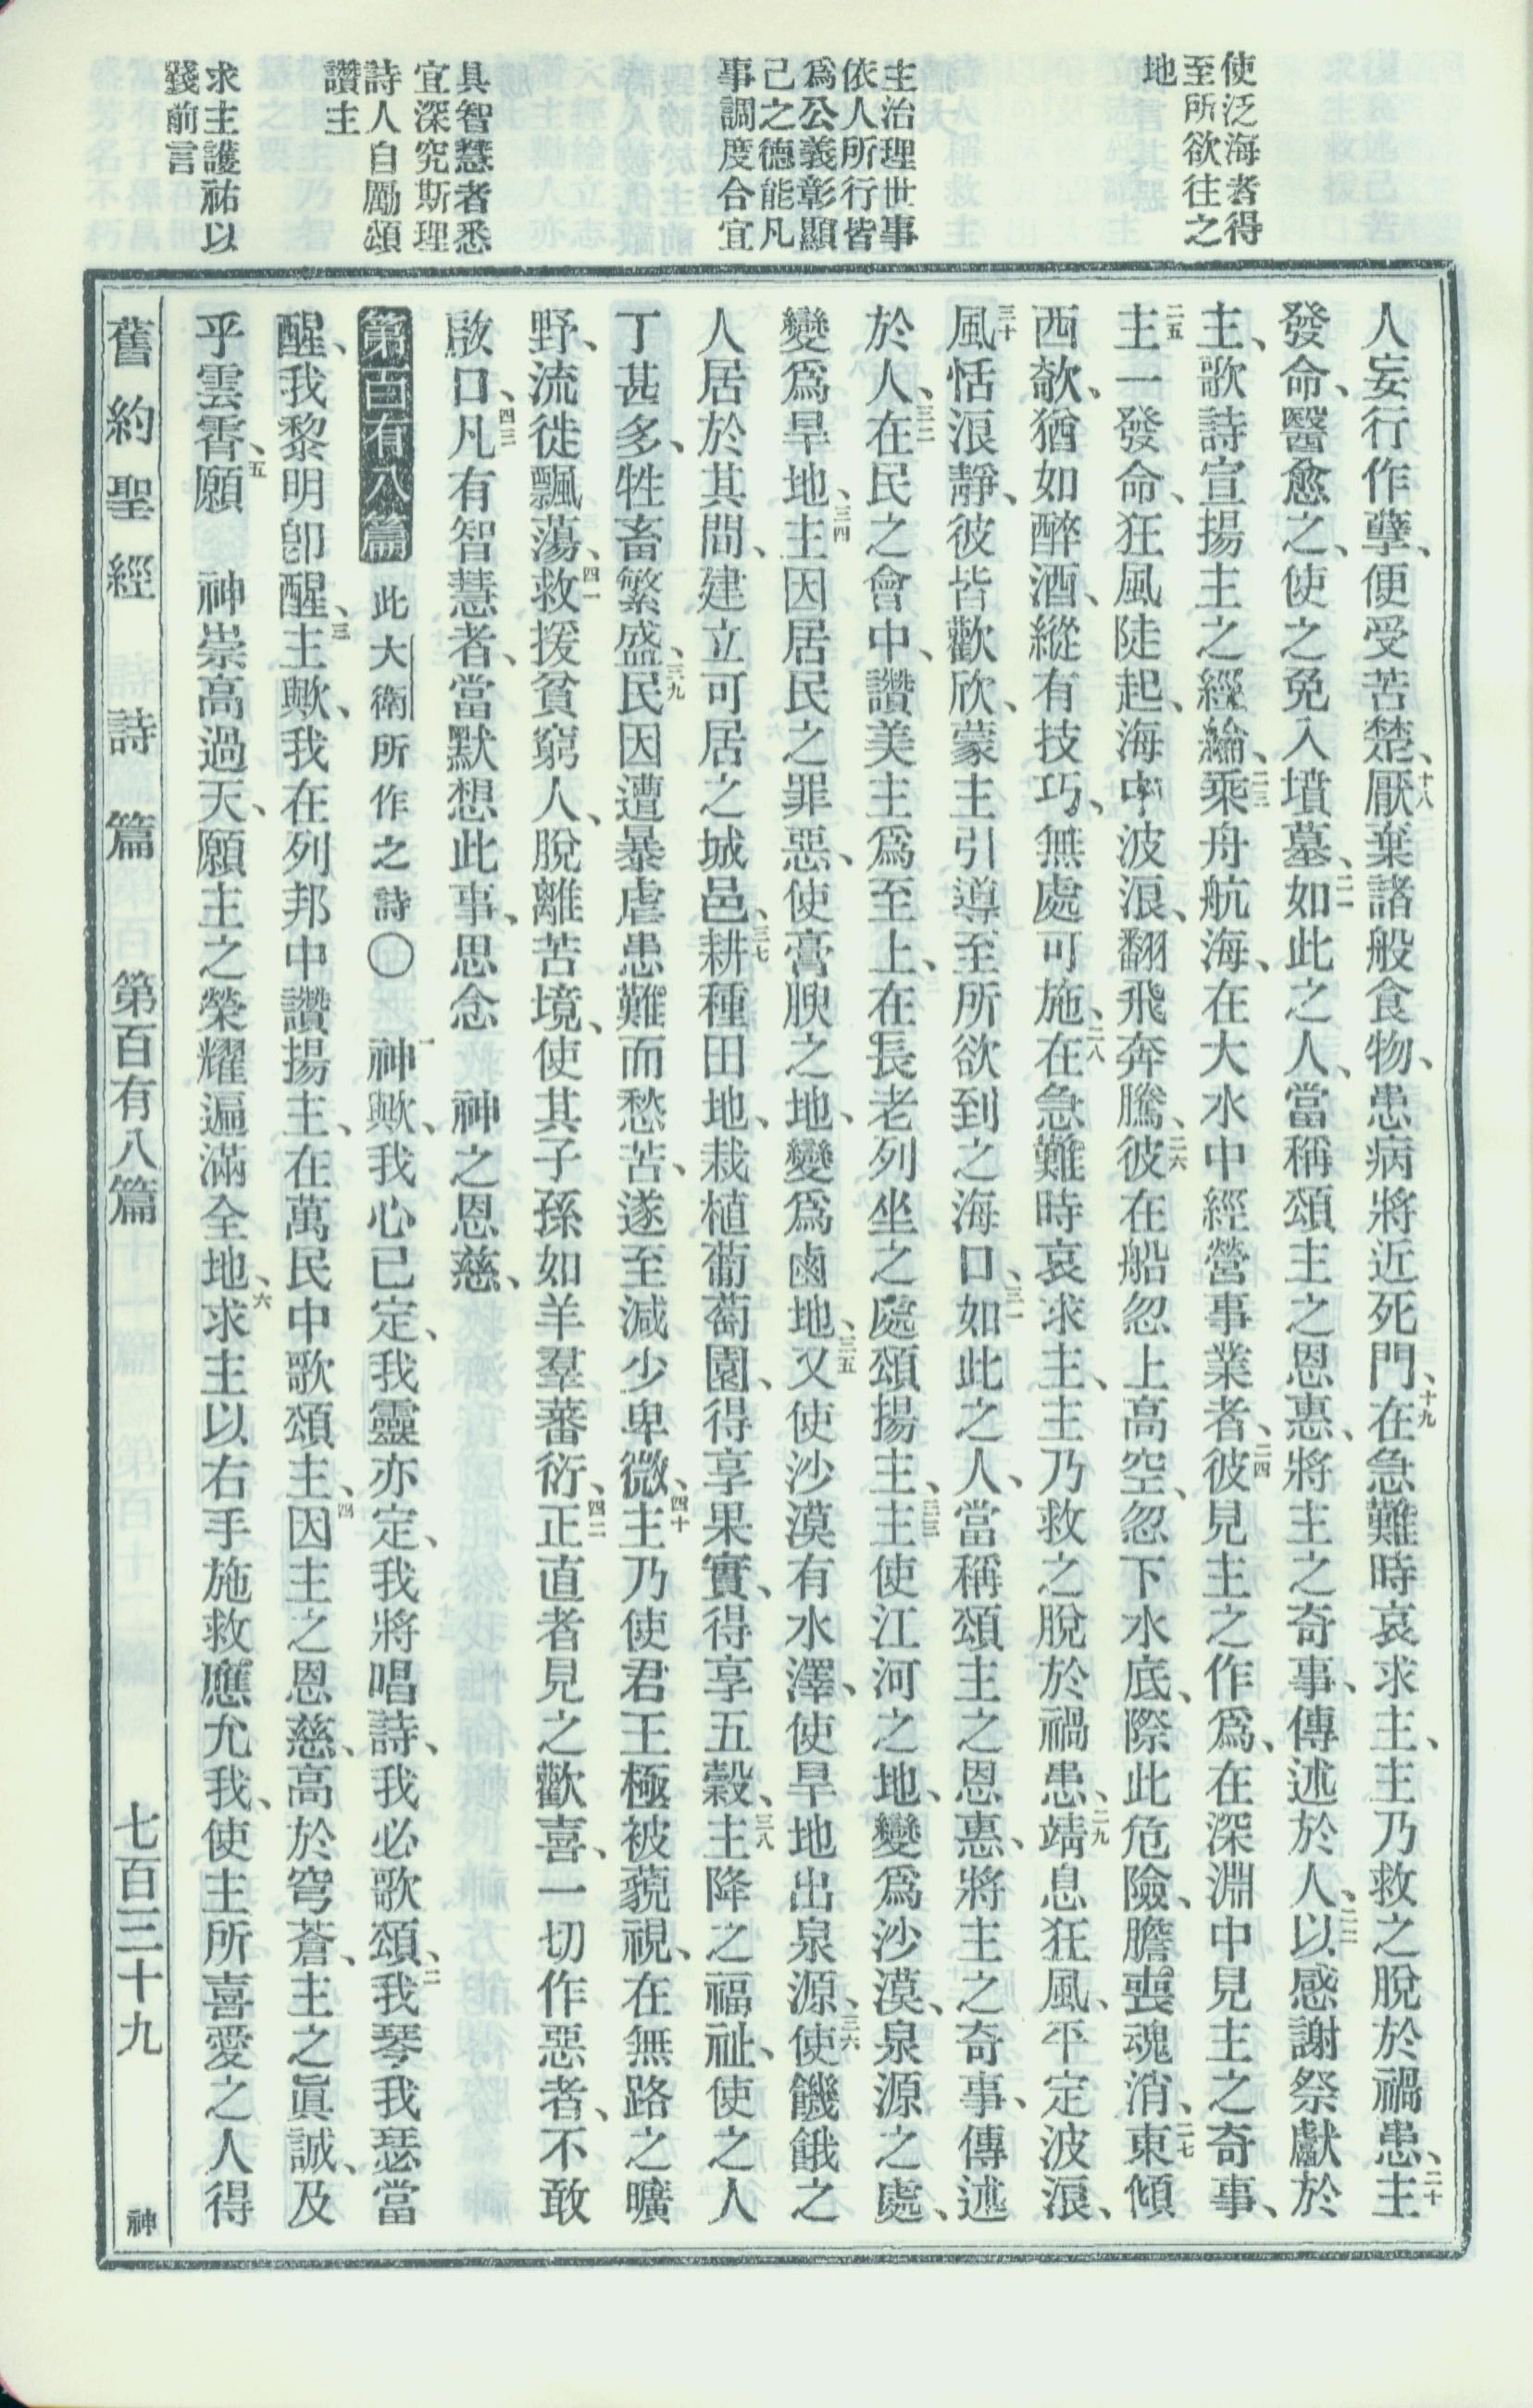 使泛海者得
至所欲往之
地
主治理世事
依人所行皆
爲公義彰顯
己之德能凡
事調度合宜
具智慧者悉
宜深究斯理
詩人自勵頌
讚主
求主護祐以
踐前言
人妄行作孽、便受苦楚、十八厭棄諸般食物、患病將近死門、十九在急難時哀求主、主乃救之脫於禍患、二十主
發命、醫愈之、使之免入墳墓、二一如此之人、當稱頌主之恩惠、將主之奇事、傳述於人、二二以感謝祭獻於
主、歌詩宣揚主之經綸、二三乘舟航海、在大水中經營事業者、二四彼見主之作爲、在深淵中見主之奇事、
二五主一發命、狂風陡起、海中波浪、翻飛奔騰、二六彼在船忽上高空、忽下水底、際此危險、膽喪魂消、二七東傾
西欹、猶如醉酒、縱有技巧、無處可施、二八在急難時哀求主、主乃救之脫於禍患、二九靖息狂風、平定波浪、
三十風恬浪靜、彼皆歡欣、蒙主引導至所欲到之海口、三一如此之人、當稱頌主之恩惠、將主之奇事、傳述
於人、三二在民之會中、讚美主爲至上、在長老列坐之處頌揚主、三三主使江河之地、變爲沙漠、泉源之處、
變爲旱地、三四主因居民之罪惡、使膏腴之地、變爲鹵地、三五又使沙漠有水澤、使旱地出泉源、三六使饑餓之
人居於其間、建立可居之城邑、三七耕種田地、栽植葡萄園、得享果實、得享五穀、三八主降之福祉、使之人
丁甚多、牲畜繁盛、三九民因遭暴虐患難而愁苦、遂至減少卑微、四十主乃使君王極被藐視、在無路之曠
野、流徙飄蕩、四一救援貧窮人、脫離苦境、使其子孫如羊羣蕃衍、四二正直者見之歡喜、一切作惡者、不敢
啟口、四三凡有智慧者、當默想此事、思念　神之恩慈、
第百有八篇　此大衛所作之詩〇　一神歟、我心已定、我靈亦定、我將唱詩、我必歌頌、二我琴我瑟當
醒、我黎明卽醒、三主歟、我在列邦中讚揚主、在萬民中歌頌主、四因主之恩慈、高於穹蒼、主之眞誠、及
乎雲霄、五願　神崇高過天、願主之榮耀遍滿全地、六求主以右手施救應允我、使主所喜愛之人得
舊約聖經　詩篇　第百有八篇　七百三十九　神